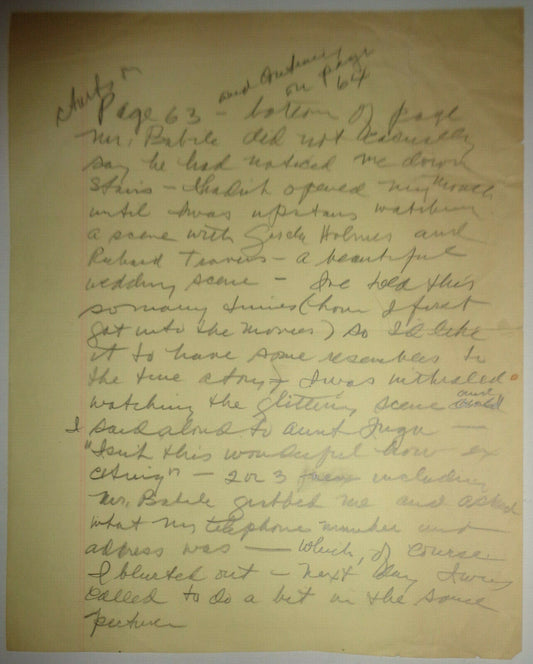 starts on
and continues
on page
64
Page 63 - bottom of page
Mr. Babile did not casually
say he had noticed me down
stairs - I hadn't opened my mouth
until I was upstairs watching
a scene with Gerda Holmes and
Richard Travers - a beautiful
wedding scene - I've told this
so many times (how I first
got into the movies) so I'd like
it to have some resembles to
the true story - I was inthraled
watching the glittering scene and
I said aloud to Aunt Inga -
"Isn't this wonderful how ex
citing" - 2 or 3 including
Mr. Babile grabbed me and asked
what my telephone number and
address was - which, of course
I blurted out - next day I was
called to do a bit in the same
picture